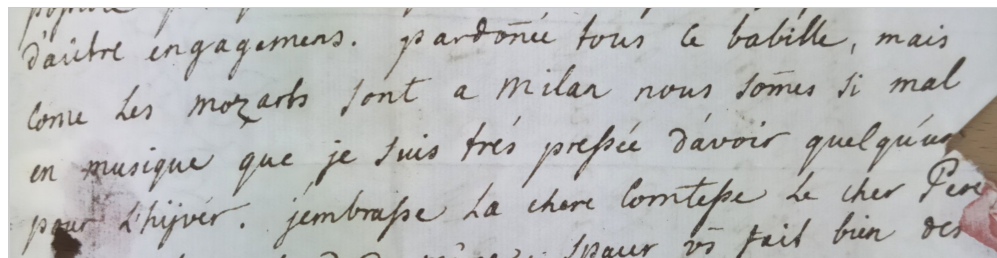 d'aûtre engagemens. pardoñée tous ce babille, mais
Come Les mozarts sont a Milan nous som̃es si mal
en musique que je suis trés preſsée d'avoir quelqu'un
pour L'hyver. j'embraſse La chere Comteſse Le cher Pere
spaur vs̃ fait bien des